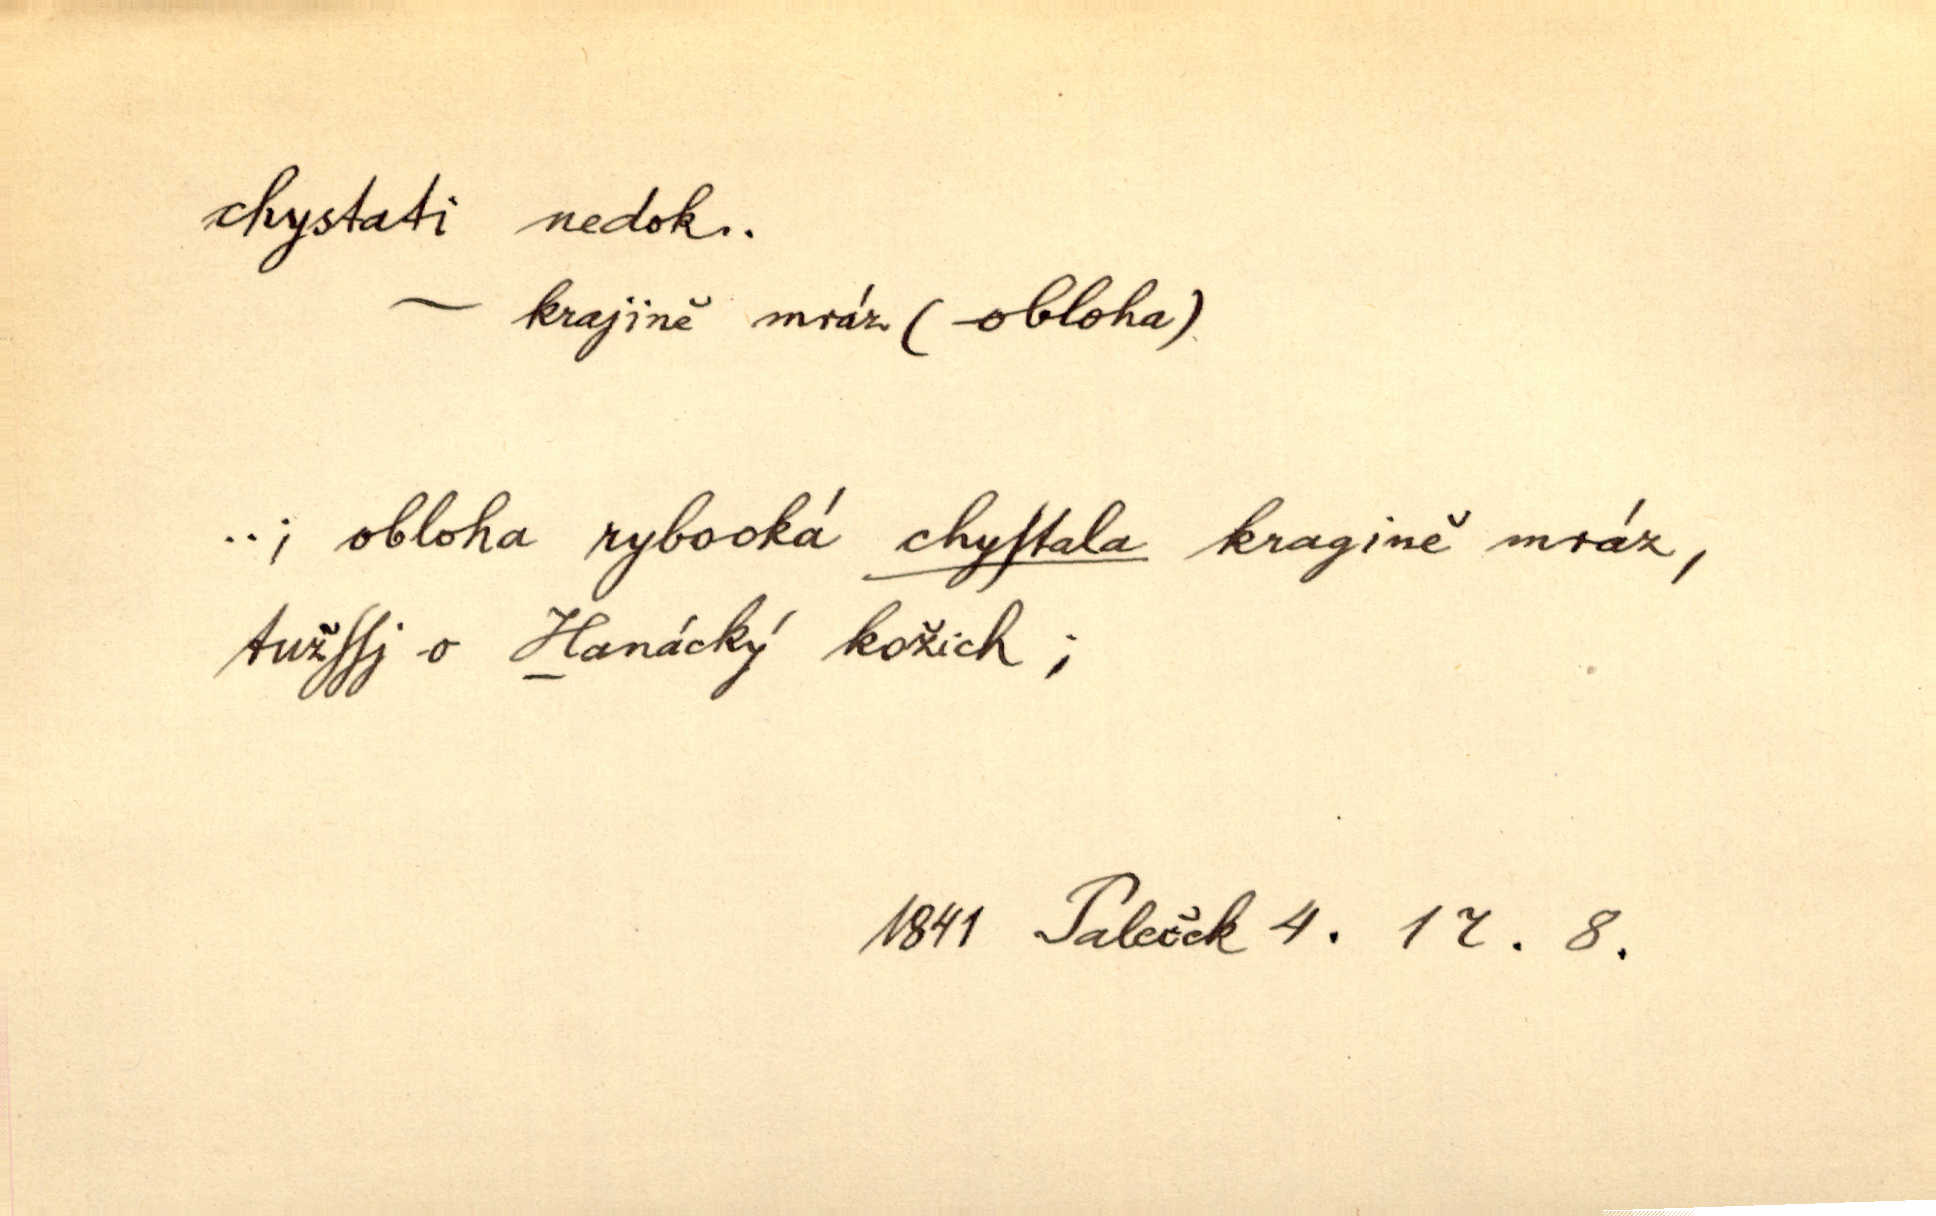 chystati nedok..
~ krajině mráz (obloha)
..; obloha rybooká chyſtala kragině mráz,
tužſſj o Hanácký kožich;
1841 Paleček 4. 17. 8.